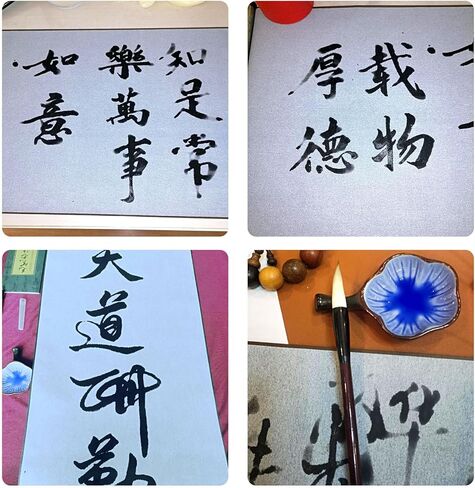 知足常
樂萬事
如意
厚德
載物
天道酬勤